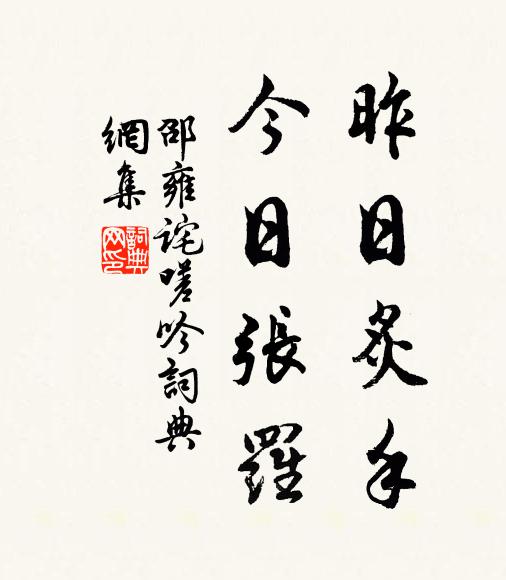 昨日炙手
今日張羅
邵雍詫嗟吟詞典
網集
詞典
网印